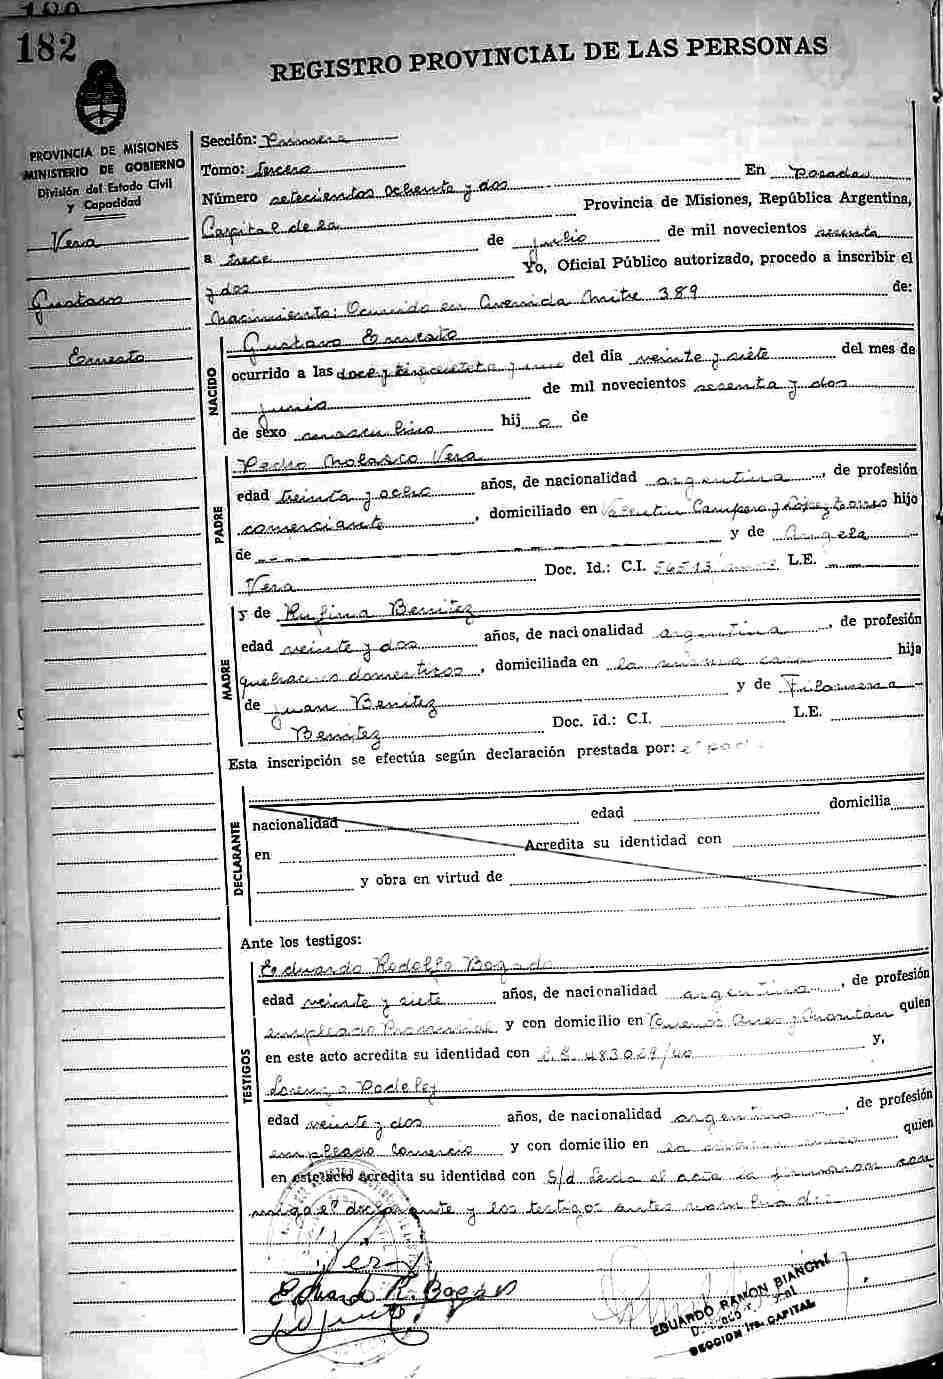 182
REGISTRO PROVINCIAL DE LAS PERSONAS
PROVINCIA DE MISIONES
MINISTERIO DE GOBIERNO
División del Estado Civil
y Capacidad
Vera
Gustavo
Ernesto
Sección: Primera
Tomo: tercero
Número setecientos ochenta y dos En Posadas
Capital de la Provincia de Misiones, República Argentina,
a trece de julio de mil novecientos sesenta
y dos Yo, Oficial Público autorizado, procedo a inscribir el
nacimiento: Ocurrido en Avenida Mitre 389 de:
NACIDO
Gustavo Ernesto
ocurrido a las doce y cincuenta y una del día veinte y siete del mes de
junio de mil novecientos sesenta y dos
de sexo masculino hijo de
PADRE
Pedro Nolasco Vera
edad treinta y ocho años, de nacionalidad argentina, de profesión
comerciante, domiciliado en Valentin Campero y López Torres hijo
de y de Angela
Vera Doc. Id.: C.I. L.E.
MADRE
y de Rufina Benitez
edad veinte y dos años, de nacionalidad argentina, de profesión
quehaceres domesticos, domiciliada en la misma casa hija
de Juan Benitez y de Filomena
Benitez Doc. id.: C.I. L.E.
Esta inscripción se efectúa según declaración prestada por: el padre
DECLARANTE
nacionalidad edad domicilia
en Acredita su identidad con
y obra en virtud de
Ante los testigos:
TESTIGOS
Eduardo Rodolfo Bogado
edad veinte y siete años, de nacionalidad argentino, de profesión
empleado Provincial y con domicilio en Buenos Aires y quien
en este acto acredita su identidad con 483029/40 y,
Lorenzo Padeley
edad veinte y dos años, de nacionalidad argentino, de profesión
empleado Comercio y con domicilio en la quien
en este acto acredita su identidad con S/d Leida el acta la firmaron con
migo el declarante y los testigos antes nombrados
Vera
Eduardo R. Bogado
EDUARDO RAMON BIANCHI
SECCION 1ra. CAPITAL